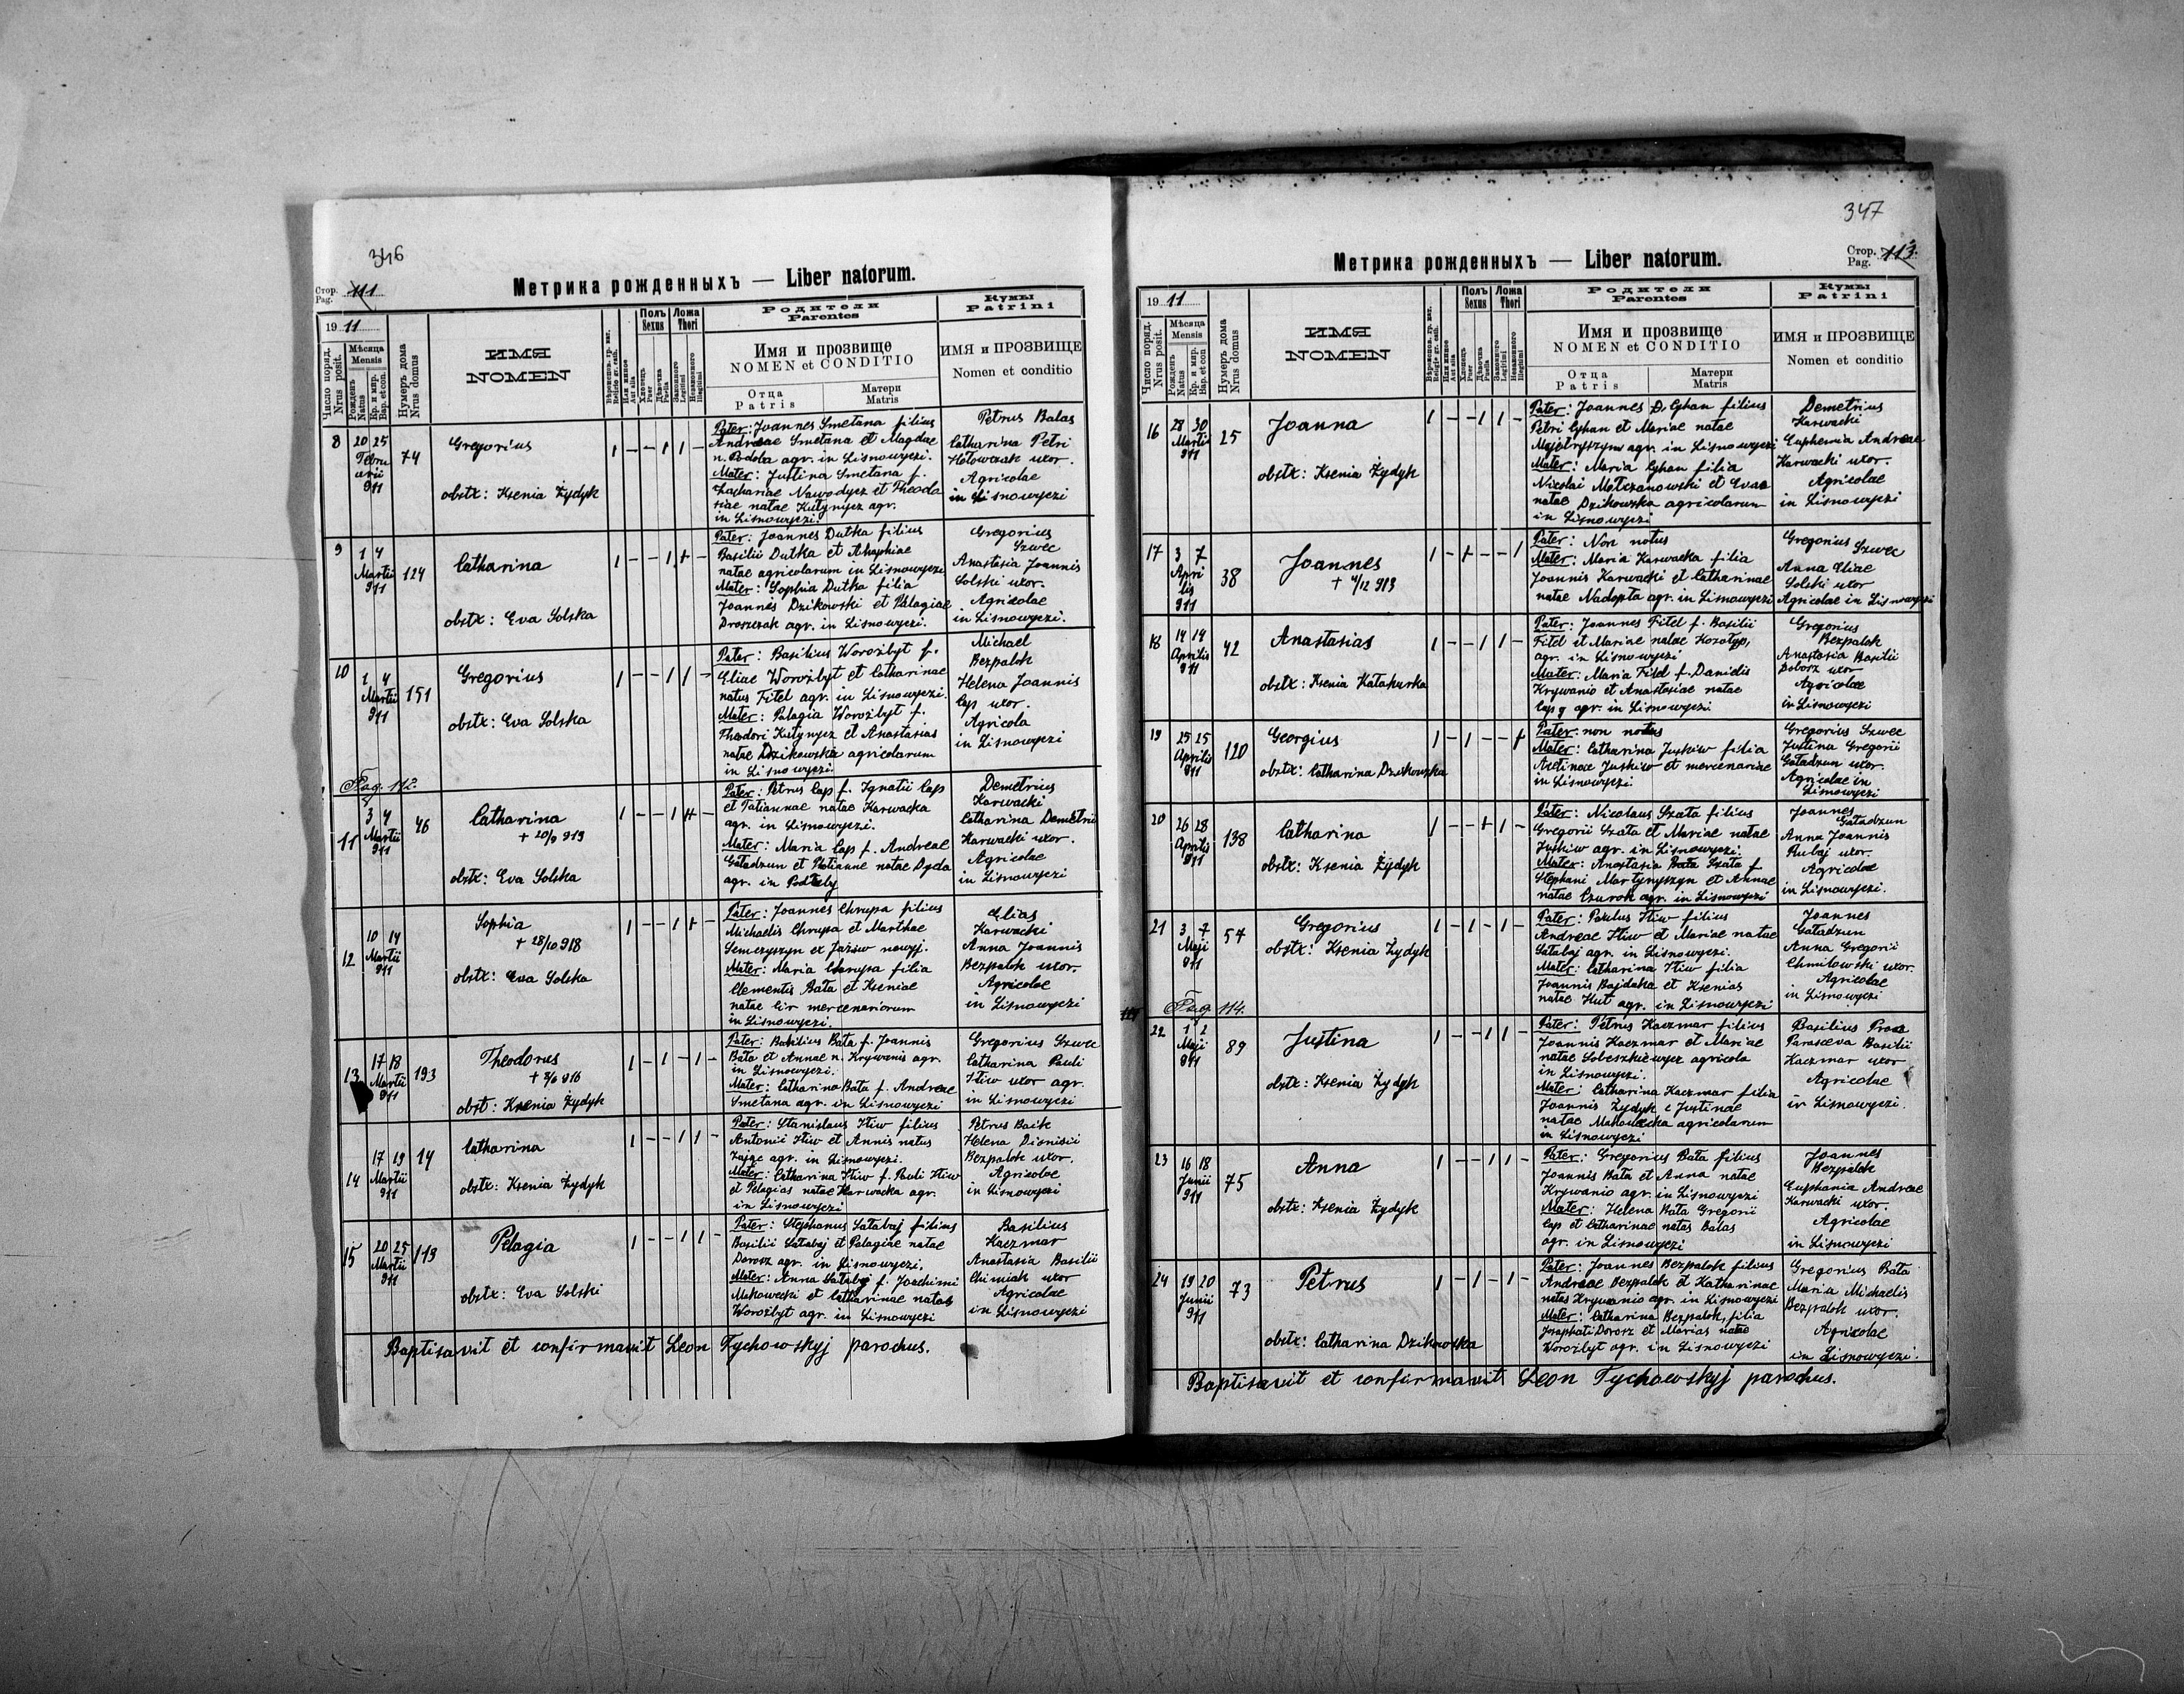 346
Стор. Pag. 111
Метрика рожденныхъ — Liber natorum.
1911
Число поряд. Nrus posit.
Мѣсяца Mensis
Рожденъ Natus
Кр. и мир. Bap. et con.
Нумеръ дома Nrus domus
ИМЯ
NOMEN
Полъ Sexus
Ложа Thori
Родители
Parentes
Имя и прозвище
NOMEN et CONDITIO
Отца Patris
Матери Matris
Кумы
Patrini
ИМЯ и ПРОЗВИЩЕ
Nomen et conditio
8
20 25
Februarii
911
74
Gregorius
obstx: Ksenia Żydyk
Pater: Joannes Smetana filius
Andreae Smetana et Magdae
n. Podoba agr. in Lisnowyczi.
Mater: Justina Smetana f.
Zachariae Nawodycz et Theodo
siae natae Kutynycz agr.
in Lisnowyczi.
Petrus Balas
Catharina Petri
Hotowczak uxor.
Agricolae
in Lisnowyczi
9
1 4
Martii
911
124
Catharina
obstx: Eva Solska
Pater: Joannes Dutka filius
Basilii Dutka et Ahaphiae
natae agricolarum in Lisnowyczi
Mater: Sophia Dutka filia
Joannis Dzikowski et Palagiae
Droszczak agr. in Lisnowyczi.
Gregorius
Szwec
Anastasia Joannis
Solski uxor.
Agricolae
in Lisnowyczi.
10
1 4
Martii
911
151
Gregorius
obstx: Eva Solska
Pater: Basilius Worożbyt f.
Eliae Worożbyt et Catharinae
natus Fitel agr. in Lisnowyczi.
Mater: Palagia Worożbyt f.
Theodori Kutynycz et Anastasias
natae Dzikowska agricolarum
in Lisnowyczi.
Michael
Bezpalok
Helena Joannis
Cap uxor.
Agricola
in Lisnowyczi
Pag. 112.
11
3 4
Martii
911
46
Catharina
+ 20/9 913
obstx: Eva Solska
Pater: Petrus Cap f. Ignatii Cap
et Tatiannae natae Karwacka
agr. in Lisnowyczi.
Mater: Maria Cap f. Andreae
Gatadzun et natae Dyda
agr. in
Demetrius
Karwacki
Catharina Demetrii
Karwacki uxor.
Agricolae
in Lisnowyczi
12
10 14
Martii
911
Sophia
+ 28/10 918
obstx: Eva Solska
Pater: Joannes Chrupa filius
Michaelis Chrupa et Marthae
Semczyszyn ex Jażiw nowyj.
Mater: Maria Chrupa filia
Clementis Bata et Kseniae
natae Cir mercenariorum
in Lisnowyczi.
Elias
Karwacki
Anna Joannis
Bezpalok uxor.
Agricolae
in Lisnowyczi
13
17 18
Martii
911
193
Theodorus
obst: Ksenia Żydyk
Pater: Basilius Bata f. Joannis
Bata et Annae n. Krywanis agr.
in Lisnowyczi.
Mater: Catharina Bata f. Andreae
Smetana agr. in Lisnowyczi
Gregorius Szwec
Catharina Pauli
Itiw uxor agr.
in Lisnowyczi
14
17 19
Martii
911
14
Catharina
obstx: Ksenia Żydyk
Pater: Stanislaus Itiw filius
Antonii Itiw et Annis natus
Zajac agr. in Lisnowyczi.
Mater: Catharina Itiw f. Pauli Itiw
et Pelagias natae Karwacka agr.
in Lisnowyczi
Petrus Baik
Helena Dionisii
Bezpalok uxor.
Agricolae
in Lisnowyczi
15
20 25
Martii
911
113
Pelagia
obstx: Eva Solski
Pater: Stephanus Satabaj filius
Basilii Satabaj et Palagiae natae
Dorosz agr. in Lisnowyczi.
Mater: Anna Satabaj f. Joachimi
Makowecki et Catharinae natas
Worożbyt agr. in Lisnowyczi
Basilius
Kaczmar
Anastasia Basilii
Chimiak uxor
Agricolae
in Lisnowyczi
Baptisavit et confirmavit Leon Tychowskyj parochus.
347
Стор. Pag. 113.
Метрика рожденныхъ — Liber natorum.
1911
Число поряд. Nrus posit.
Мѣсяца Mensis
Рожденъ Natus
Кр. и мир. Bap. et con.
Нумеръ дома Nrus domus
ИМЯ
NOMEN
Полъ Sexus
Ложа Thori
Родители
Parentes
Имя и прозвище
NOMEN et CONDITIO
Отца Patris
Матери Matris
Кумы
Patrini
ИМЯ и ПРОЗВИЩЕ
Nomen et conditio
16
28 30
Martii
911
25
Joanna
obstx: Ksenia Żydyk
Pater: Joannes D. Cyhan filius
Petri Cyhan et Mariae natae
agr. in Lisnowyczi
Mater: Maria Cyhan filia
Nicolai Motczanowski et Evae
natae Dzikowska agricolarum
in Lisnowyczi
Demetrius
Karwacki
Euphemia Andreae
Karwacki uxor.
Agricolae
in Lisnowyczi
17
3 7
Aprilis
911
38
Joannes
+ 4/12 913
Pater: Non notus
Mater: Maria Karwacka filia
Joannis Karwacki et Catharinae
natae Nadopta agr. in Lisnowyczi
Gregorius
Szwec
Anna Eliae
Solski uxor
Agricolae in Lisnowyczi
18
14 14
Aprilis
911
42
Anastasias
obstx: Ksenia Katakurka
Pater: Joannes Fitel f. Basilii
Fitel et Mariae natae Kozotyp,
agr. in Lisnowyczi
Mater: Maria Fitel f. Danidis
Krywanio et Anastasiae natae
Cap agr. in Lisnowyczi
Gregorius
Bezpalok
Anastasia Basilii
Dobosz uxor
Agricolae
in Lisnowyczi
19
25 25
Aprilis
911
120
Georgius
obstx: Catharina Dzikowska
Pater: non notus
Mater: Catharina Juśkiw filia
Juśkiw et mercenariae
in Lisnowyczi
Gregorius Szwec
Justina Gregorii
Gatadzun uxor.
Agricolae in
Lisnowyczi
20
26 28
Aprilis
911
138
Catharina
obstx: Ksenia Żydyk
Pater: Nicolaus Szata filius
Gregorii Szata et Mariae natae
Juśkiw agr. in Lisnowyczi.
Mater: Anastasia Bata Szata f.
Stephani Martynyszyn et Annae
natae Czurok agr. in Lisnowyczi
Joannes
Gatadzun
Anna Joannis
Rubaj uxor.
Agricolae
in Lisnowyczi.
21
3 7
Maji
911
57
Gregorius
obstx: Ksenia Żydyk
Pater: Paulus Itiw filius
Andreae Itiw et Mariae natae
Satabaj agr. in Lisnowyczi.
Mater: Catharina Itiw filia
Joannis Bajdaka et Ksenias
natae Kut agr. in Lisnowyczi
Joannes
Gatadzun
Anna Gregorii
Chmilowski uxor.
Agricolae
in Lisnowyczi
Pag. 114.
22
1 2
Maji
911
89
Justina
obstx: Ksenia Żydyk
Pater: Petrus Kaczmar filius
Joannis Kaczmar et Mariae
natae Sobeszkiewycz agricola
in Lisnowyczi.
Mater: Catharina Kaczmar filia
Joannis Żydyk e Justinae
natae Makowecka agricolarum
in Lisnowyczi
Basilius
Parasceva Basilii
Kaczmar uxor
Agricolae
in Lisnowyczi.
23
16 18
Junii
911
75
Anna
obstx: Ksenia Żydyk
Pater: Gregorius Bata filius
Joannis Bata et Anna natae
Krywanio agr. in Lisnowyczi
Mater: Helena Bata Gregorii
Cap et Catharinae natas Balas
agr. in Lisnowyczi
Joannes
Bezpalok
Euphania Andreae
Karwacki uxor.
Agricolae
in Lisnowyczi
24
19 20
Junii
911
73
Petrus
obstx: Catharina Dzikowska
Pater: Joannes Bezpalok filius
Andreae Bezpalok et Katharinae
natas Krywanio agr. in Lisnowyczi
Mater: Catharina Bezpalok, filia
Josaphati Dorosz et Marias natae
Worożbyt agr. in Lisnowyczi
Gregorius Bata
Maria Michaelis
Bezpalok uxor.
Agricolae
in Lisnowyczi.
Baptisavit et confirmavit Leon Tychowskyj parochus.